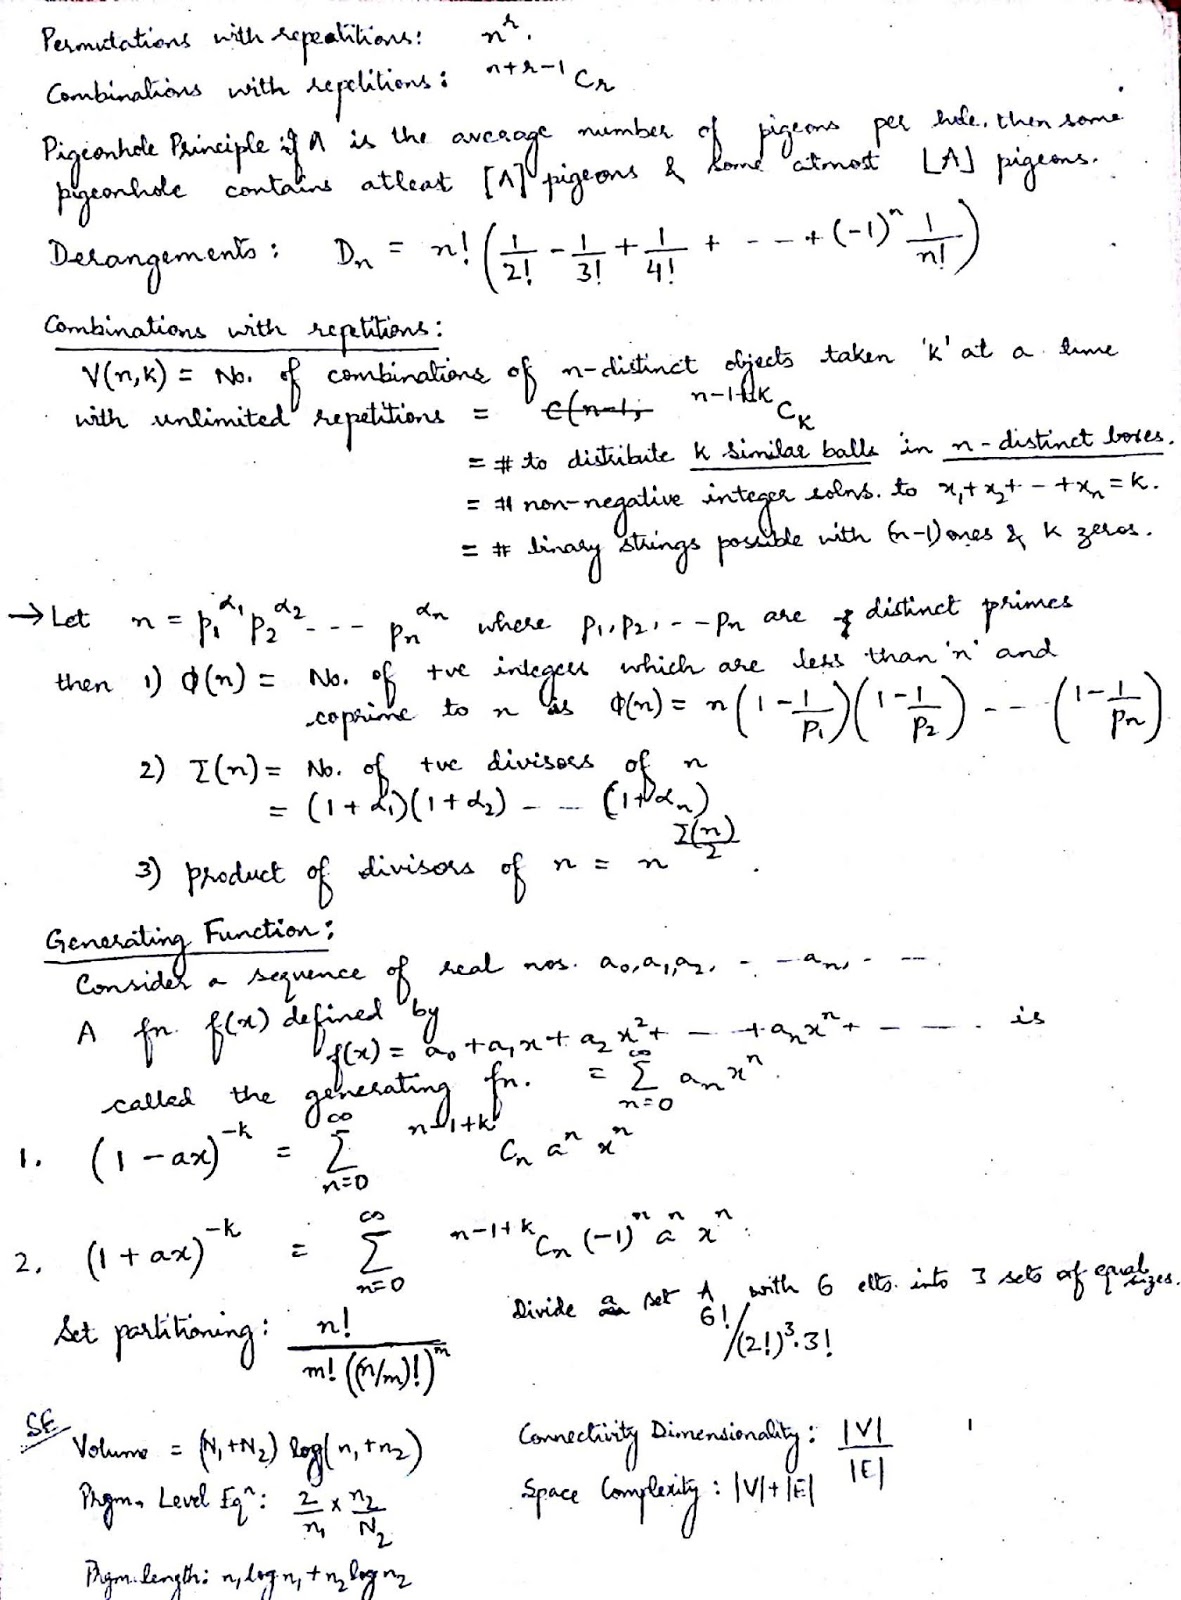 Permutations with repeatitions: n^r.
Combinations with repetitions: ^{n+r-1}C_r
Pigeonhole Principle: if A is the average number of pigeons per hole, then some
pigeonhole contains atleast ⌈A⌉ pigeons & some atmost ⌊A⌋ pigeons.
Derangements: D_n = n! (1/2! - 1/3! + 1/4! + - - - + (-1)^n 1/n!)
Combinations with repetitions:
V(n,k) = No. of combinations of n-distinct objects taken 'k' at a time
with unlimited repetitions = ^{n-1+k}C_k
= # to distribute k similar balls in n-distinct boxes.
= # non-negative integer solns. to x_1+x_2+ - +x_n = k.
= # binary strings possible with (n-1) ones & k zeros.
→ Let n = p_1^{α_1} p_2^{α_2} - - - p_n^{α_n} where p_1, p_2, - - p_n are distinct primes
then 1) Φ(n) = No. of +ve integers which are less than 'n' and
coprime to n is Φ(n) = n (1 - 1/p_1)(1 - 1/p_2) - - - (1 - 1/p_n)
2) Σ(n) = No. of +ve divisors of n
= (1+α_1)(1+α_2) - - - (1+α_n)
3) product of divisors of n = n^{Σ(n)/2}.
Generating Function:
Consider a sequence of real nos. a_0, a_1, a_2, - - - a_n, - - -.
A fn. f(x) defined by
f(x) = a_0 + a_1x + a_2x^2 + - - + a_nx^n + - - - . is
called the generating fn. = Σ_{n=0}^{∞} a_n x^n.
1. (1 - ax)^{-k} = Σ_{n=0}^{∞} ^{n-1+k}C_n a^n x^n
2. (1 + ax)^{-k} = Σ_{n=0}^{∞} ^{n-1+k}C_n (-1)^n a^n x^n.
Set partitioning: n! / m! ((n/m)!)^m
Divide a set A with 6 elts. into 3 sets of equal sizes.
6!/(2!)^3.3!
SE
Volume = (N_1+N_2) log(n_1+n_2)
Prgm. Level Eq^n: 2/n_1 × n_2/N_2
Prgm. length: n_1 log n_1 + n_2 log n_2
Connectivity Dimensionality: |V|/|E|
Space Complexity: |V|+|E|